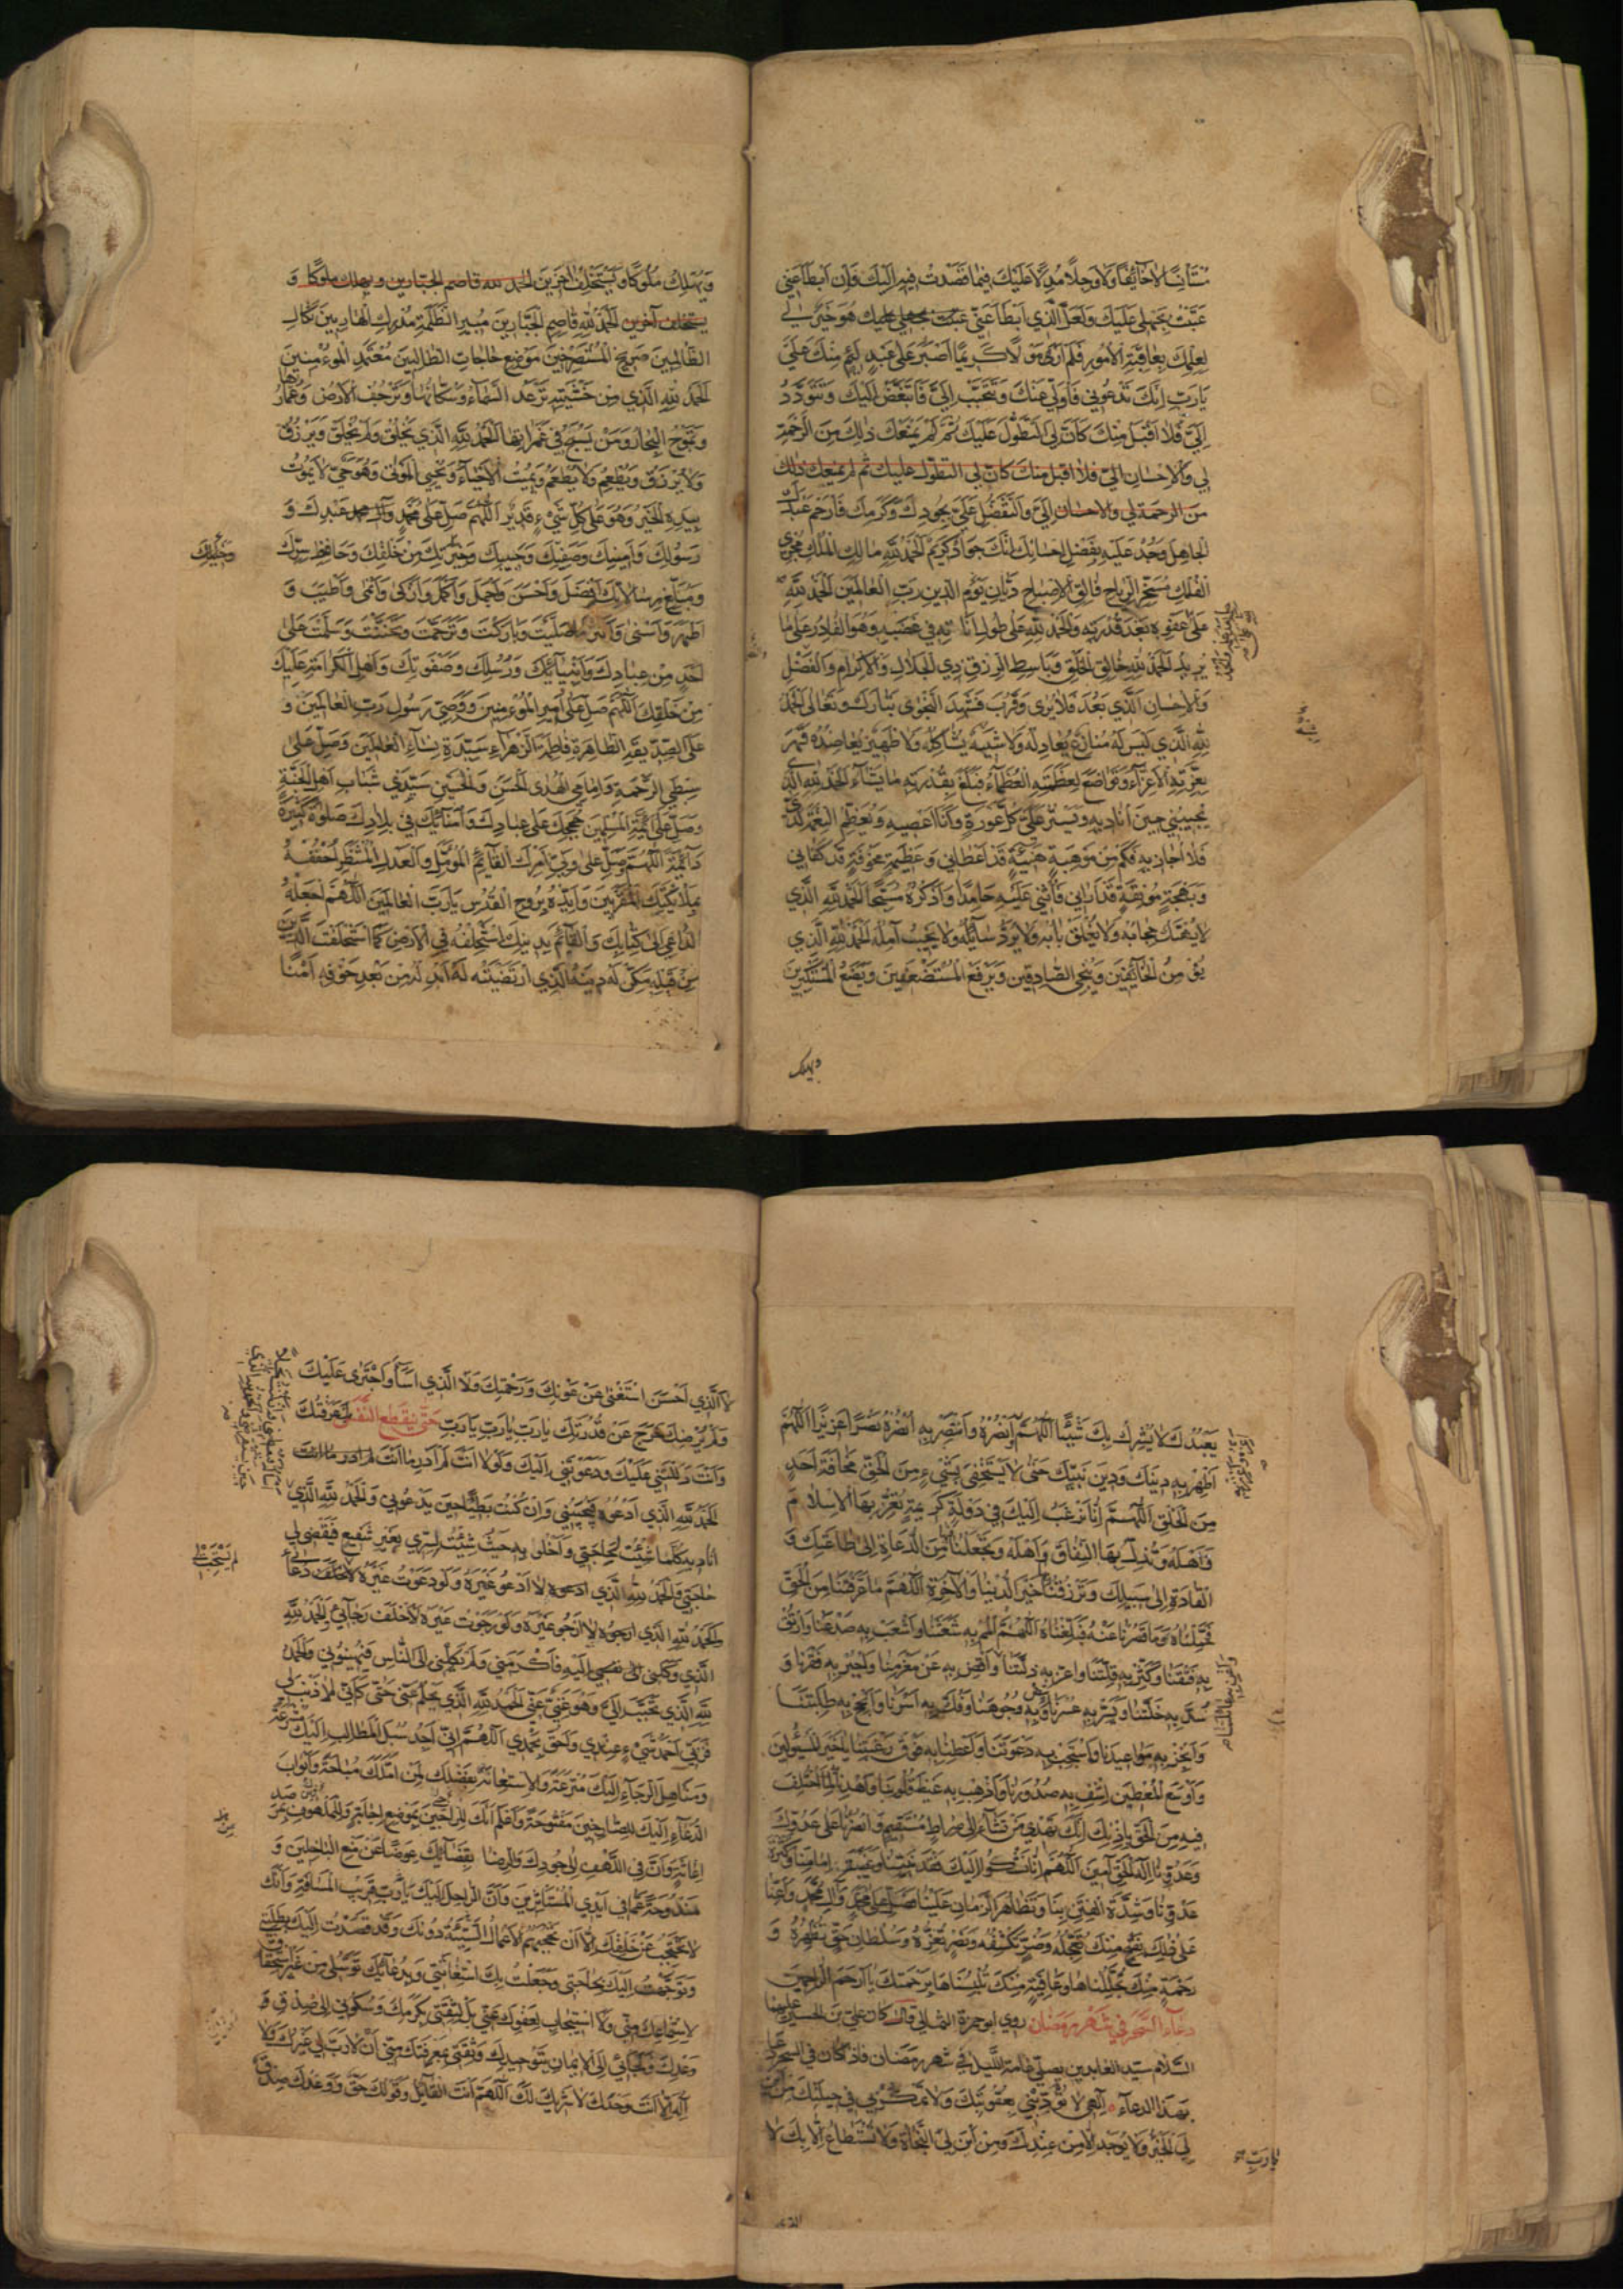 مُسْتَأْنِسًا لَا خَائِفًا وَلَا وَجِلًا مُدِلًّا عَلَيْكَ فِيمَا قَصَدْتُ فِيهِ إِلَيْكَ فَإِنْ أَبْطَأَ عَنِّي
عَتَبْتُ بِجَهْلِي عَلَيْكَ وَلَعَلَّ الَّذِي أَبْطَأَ عَنِّي عتبت بجهلي عليك هُوَ خَيْرٌ لِي
لِعِلْمِكَ بِعَاقِبَةِ الْأُمُورِ فَلَمْ أَرَ مَوْلًا كَرِيمًا أَصْبَرَ عَلَى عَبْدٍ لَئِيمٍ مِنْكَ عَلَيَّ
يَا رَبِّ إِنَّكَ تَدْعُونِي فَأُوَلِّي عَنْكَ وَتَتَحَبَّبُ إِلَيَّ فَأَتَبَغَّضُ إِلَيْكَ وَتَتَوَدَّدُ
إِلَيَّ فَلَا أَقْبَلُ مِنْكَ كَأَنَّ لِيَ التَّطَوُّلَ عَلَيْكَ ثُمَّ لَمْ يَمْنَعْكَ ذٰلِكَ مِنَ الرَّحْمَةِ
لِي وَالْإِحْسَانِ إِلَيَّ فلا اقبل منك كان لي التطول عليك ثم لم يمنعك ذلك
من الرحمة لي والاحسان إِلَيَّ وَالتَّفَضُّلِ عَلَيَّ بِجُودِكَ وَكَرَمِكَ فَارْحَمْ عَبْدَكَ
الْجَاهِلَ وَجُدْ عَلَيْهِ بِفَضْلِ إِحْسَانِكَ إِنَّكَ جَوَادٌ كَرِيمٌ الْحَمْدُ لِلَّهِ مَالِكِ الْمُلْكِ مُجْرِي
الْفُلْكِ مُسَخِّرِ الرِّيَاحِ فَالِقِ الْإِصْبَاحِ دَيَّانِ يَوْمِ الدِّينِ رَبِّ الْعَالَمِينَ الْحَمْدُ لِلَّهِ
عَلَى عَفْوِهِ بَعْدَ قُدْرَتِهِ وَالْحَمْدُ لِلَّهِ عَلَى طُولِ أَنَاتِهِ فِي غَضَبِهِ وَهُوَ الْقَادِرُ عَلَى مَا
يُرِيدُ الْحَمْدُ لِلَّهِ خَالِقِ الْخَلْقِ وَبَاسِطِ الرِّزْقِ ذِي الْجَلَالِ وَالْإِكْرَامِ وَالْفَضْلِ
وَالْإِحْسَانِ الَّذِي بَعُدَ فَلَا يُرَى وَقَرُبَ فَشَهِدَ النَّجْوَى تَبَارَكَ وَتَعَالَى الْحَمْدُ
لِلَّهِ الَّذِي لَيْسَ لَهُ مُنَازِعٌ يُعَادِلُهُ وَلَا شَبِيهٌ يُشَاكِلُهُ وَلَا ظَهِيرٌ يُعَاضِدُهُ قَهَرَ
بِعِزَّتِهِ الْأَعِزَّاءَ وَتَوَاضَعَ لِعَظَمَتِهِ الْعُظَمَاءُ فَبَلَغَ بِقُدْرَتِهِ مَا يَشَاءُ الْحَمْدُ لِلَّهِ الَّذِي
يُجِيبُنِي حِينَ أُنَادِيهِ وَيَسْتُرُ عَلَيَّ كُلَّ عَوْرَةٍ وَأَنَا أَعْصِيهِ وَيُعَظِّمُ النِّعْمَةَ
فَلَا أُجَازِيهِ فَكَمْ مِنْ مَوْهِبَةٍ هَنِيئَةٍ قَدْ أَعْطَانِي وَعَظِيمَةٍ مَخُوفَةٍ قَدْ كَفَانِي
وَبَهْجَةٍ مُونِقَةٍ قَدْ أَرَانِي فَأُثْنِي عَلَيْهِ حَامِدًا وَأَذْكُرُهُ مُسَبِّحًا الْحَمْدُ لِلَّهِ الَّذِي
لَا يُهْتَكُ حِجَابُهُ وَلَا يُغْلَقُ بَابُهُ وَلَا يُرَدُّ سَائِلُهُ وَلَا يُخَيَّبُ آمِلُهُ الْحَمْدُ لِلَّهِ الَّذِي
يُؤْمِنُ الْخَائِفِينَ وَيُنْجِي الصَّادِقِينَ وَيَرْفَعُ الْمُسْتَضْعَفِينَ وَيَضَعُ الْمُسْتَكْبِرِينَ
ويهلك
وَيُهْلِكُ مُلُوكًا وَيَسْتَخْلِفُ آخَرِينَ الحمد لله قاصم الجبارين ويهلك ملوكا و
يستخلف آخرين الْحَمْدُ لِلَّهِ قَاصِمِ الْجَبَّارِينَ مُبِيرِ الظَّلَمَةِ مُدْرِكِ الْهَارِبِينَ نَكَالِ
الظَّالِمِينَ صَرِيخِ الْمُسْتَصْرِخِينَ مَوْضِعِ حَاجَاتِ الطَّالِبِينَ مُعْتَمَدِ الْمُؤْمِنِينَ
الْحَمْدُ لِلَّهِ الَّذِي مِنْ خَشْيَتِهِ تَرْعُدُ السَّمَاءُ وَسُكَّانُهَا وَتَرْجُفُ الْأَرْضُ وَعُمَّارُهَا
وَتَمُوجُ الْبِحَارُ وَمَنْ يَسْبَحُ فِي غَمَرَاتِهَا الْحَمْدُ لِلَّهِ الَّذِي يَخْلُقُ وَلَمْ يُخْلَقْ وَيَرْزُقُ
وَلَا يُرْزَقُ وَيُطْعِمُ وَلَا يُطْعَمُ وَيُمِيتُ الْأَحْيَاءَ وَيُحْيِي الْمَوْتَى وَهُوَ حَيٌّ لَا يَمُوتُ
بِيَدِهِ الْخَيْرُ وَهُوَ عَلَى كُلِّ شَيْءٍ قَدِيرٌ اللَّهُمَّ صَلِّ عَلَى مُحَمَّدٍ وَآلِ مُحَمَّدٍ عَبْدِكَ وَ
رَسُولِكَ وَأَمِينِكَ وَصَفِيِّكَ وَحَبِيبِكَ وَخِيَرَتِكَ مِنْ خَلْقِكَ وَحَافِظِ سِرِّكَ
وَمُبَلِّغِ رِسَالَاتِكَ أَفْضَلَ وَأَحْسَنَ وَأَجْمَلَ وَأَكْمَلَ وَأَزْكَى وَأَنْمَى وَأَطْيَبَ وَ
أَطْهَرَ وَأَسْنَى وَأَكْثَرَ مَا صَلَّيْتَ وَبَارَكْتَ وَتَرَحَّمْتَ وَتَحَنَّنْتَ وَسَلَّمْتَ عَلَى
أَحَدٍ مِنْ عِبَادِكَ وَأَنْبِيَائِكَ وَرُسُلِكَ وَصَفْوَتِكَ وَأَهْلِ الْكَرَامَةِ عَلَيْكَ
مِنْ خَلْقِكَ اللَّهُمَّ صَلِّ عَلَى أَمِيرِ الْمُؤْمِنِينَ وَوَصِيِّ رَسُولِ رَبِّ الْعَالَمِينَ وَ
عَلَى الصِّدِّيقَةِ الطَّاهِرَةِ فَاطِمَةَ الزَّهْرَاءِ سَيِّدَةِ نِسَاءِ الْعَالَمِينَ وَصَلِّ عَلَى
سِبْطَيِ الرَّحْمَةِ وَإِمَامَيِ الْهُدَى الْحَسَنِ وَالْحُسَيْنِ سَيِّدَيْ شَبَابِ أَهْلِ الْجَنَّةِ
وَصَلِّ عَلَى أَئِمَّةِ الْمُسْلِمِينَ حُجَجِكَ عَلَى عِبَادِكَ وَأُمَنَائِكَ فِي بِلَادِكَ صَلَوةً كَثِيرَةً
دَائِمَةً اللَّهُمَّ وَصَلِّ عَلَى وَلِيِّ أَمْرِكَ الْقَائِمِ الْمُؤَمَّلِ وَالْعَدْلِ الْمُنْتَظَرِ احْفُفْهُ
بِمَلَائِكَتِكَ الْمُقَرَّبِينَ وَأَيِّدْهُ بِرُوحِ الْقُدُسِ يَا رَبَّ الْعَالَمِينَ اللَّهُمَّ اجْعَلْهُ
الدَّاعِيَ إِلَى كِتَابِكَ وَالْقَائِمَ بِدِينِكَ اسْتَخْلِفْهُ فِي الْأَرْضِ كَمَا اسْتَخْلَفْتَ الَّذِينَ
مِنْ قَبْلِهِ مَكِّنْ لَهُ دِينَهُ الَّذِي ارْتَضَيْتَهُ لَهُ أَبْدِلْهُ مِنْ بَعْدِ خَوْفِهِ أَمْنًا
يَعْبُدُكَ لَا يُشْرِكُ بِكَ شَيْئًا اللَّهُمَّ انْصُرْهُ وَانْتَصِرْ بِهِ انْصُرْهُ نَصْرًا عَزِيزًا اللَّهُمَّ
أَظْهِرْ بِهِ دِينَكَ وَدِينَ نَبِيِّكَ حَتَّى لَا يَسْتَخْفِيَ بِشَيْءٍ مِنَ الْحَقِّ مَخَافَةَ أَحَدٍ
مِنَ الْخَلْقِ اللَّهُمَّ إِنَّا نَرْغَبُ إِلَيْكَ فِي دَوْلَةٍ كَرِيمَةٍ تُعِزُّ بِهَا الْإِسْلَامَ
وَأَهْلَهُ وَتُذِلُّ بِهَا النِّفَاقَ وَأَهْلَهُ وَتَجْعَلُنَا مِنَ الدُّعَاةِ إِلَى طَاعَتِكَ وَ
الْقَادَةِ إِلَى سَبِيلِكَ وَتَرْزُقُنَا خَيْرَ الدُّنْيَا وَالْآخِرَةِ اللَّهُمَّ مَا عَرَّفْتَنَا مِنَ الْحَقِّ
فَحَمِّلْنَاهُ وَمَا قَصُرْنَا عَنْهُ فَبَلِّغْنَاهُ اللَّهُمَّ الْمُمْ بِهِ شَعَثَنَا وَاشْعَبْ بِهِ صَدْعَنَا وَارْتُقْ
بِهِ فَتْقَنَا وَكَثِّرْ بِهِ قِلَّتَنَا وَأَعِزَّ بِهِ ذِلَّتَنَا وَاقْضِ بِهِ عَنْ مَغْرَمِنَا وَاجْبُرْ بِهِ فَقْرَنَا وَ
سُدَّ بِهِ خَلَّتَنَا وَيَسِّرْ بِهِ عُسْرَنَا وَبَيِّضْ بِهِ وُجُوهَنَا وَفُكَّ بِهِ أَسْرَنَا وَأَنْجِحْ بِهِ طَلِبَتَنَا
وَأَنْجِزْ بِهِ مَوَاعِيدَنَا وَاسْتَجِبْ بِهِ دَعْوَتَنَا وَأَعْطِنَا بِهِ فَوْقَ رَغْبَتِنَا يَا خَيْرَ الْمَسْئُولِينَ
وَأَوْسَعَ الْمُعْطِينَ اشْفِ بِهِ صُدُورَنَا وَأَذْهِبْ بِهِ غَيْظَ قُلُوبِنَا وَاهْدِنَا لِمَا اخْتُلِفَ
فِيهِ مِنَ الْحَقِّ بِإِذْنِكَ إِنَّكَ تَهْدِي مَنْ تَشَاءُ إِلَى صِرَاطٍ مُسْتَقِيمٍ وَانْصُرْنَا عَلَى عَدُوِّكَ
وَعَدُوِّنَا إِلَهَ الْحَقِّ آمِينَ اللَّهُمَّ إِنَّا نَشْكُوا إِلَيْكَ فَقْدَ نَبِيِّنَا وَغَيْبَةَ إِمَامِنَا وَكَثْرَةَ
عَدُوِّنَا وَشِدَّةَ الْفِتَنِ بِنَا وَتَظَاهُرَ الزَّمَانِ عَلَيْنَا فَصَلِّ عَلَى مُحَمَّدٍ وَآلِ مُحَمَّدٍ وَأَعِنَّا
عَلَى ذٰلِكَ بِفَتْحٍ مِنْكَ تُعَجِّلُهُ وَضُرٍّ تَكْشِفُهُ وَنَصْرٍ تُعِزُّهُ وَسُلْطَانِ حَقٍّ تُظْهِرُهُ وَ
رَحْمَةٍ مِنْكَ تُجَلِّلُنَاهَا وَعَافِيَةٍ مِنْكَ تُلْبِسُنَاهَا بِرَحْمَتِكَ يَا أَرْحَمَ الرَّاحِمِينَ
دعاء السحر في شهر رمضان روى ابو حمزة الثمالي قال كان علي بن الحسين عليهما
السلام سيد العابدين يصلي عامة الليل في شهر رمضان فاذا كان في السحر دعا
بهذا الدعاء إِلٰهِي لَا تُؤَدِّبْنِي بِعُقُوبَتِكَ وَلَا تَمْكُرْ بِي فِي حِيلَتِكَ مِنْ أَيْنَ
لِيَ الْخَيْرُ وَلَا يُوجَدُ إِلَّا مِنْ عِنْدِكَ وَمِنْ أَيْنَ لِيَ النَّجَاةُ وَلَا تُسْتَطَاعُ إِلَّا بِكَ لَا
يَا رَبِّ
لَا الَّذِي أَحْسَنَ اسْتَغْنَى عَنْ عَوْنِكَ وَرَحْمَتِكَ وَلَا الَّذِي أَسَاءَ وَاجْتَرَى عَلَيْكَ
وَلَمْ يُرْضِكَ خَرَجَ عَنْ قُدْرَتِكَ يَا رَبِّ يَا رَبِّ يَا رَبِّ حَتَّى يَنْقَطِعَ النَّفَسُ بِكَ عَرَفْتُكَ
وَأَنْتَ دَلَلْتَنِي عَلَيْكَ وَدَعَوْتَنِي إِلَيْكَ وَلَوْلَا أَنْتَ لَمْ أَدْرِ مَا أَنْتَ لم ادر ما انت
الْحَمْدُ لِلَّهِ الَّذِي أَدْعُوهُ فَيُجِيبُنِي وَإِنْ كُنْتُ بَطِيئًا حِينَ يَدْعُونِي وَالْحَمْدُ لِلَّهِ الَّذِي
أُنَادِيهِ كُلَّمَا شِئْتُ لِحَاجَتِي وَأَخْلُو بِهِ حَيْثُ شِئْتُ لِسِرِّي بِغَيْرِ شَفِيعٍ فَيَقْضِي لِي
حَاجَتِي وَالْحَمْدُ لِلَّهِ الَّذِي أَدْعُوهُ لَا أَدْعُو غَيْرَهُ وَلَوْ دَعَوْتُ غَيْرَهُ لَأَخْلَفَ دُعَائِي
الْحَمْدُ لِلَّهِ الَّذِي أَرْجُوهُ لَا أَرْجُو غَيْرَهُ وَلَوْ رَجَوْتُ غَيْرَهُ لَأَخْلَفَ رَجَائِي الْحَمْدُ لِلَّهِ
الَّذِي وَكَلَنِي إِلَيْهِ فَأَكْرَمَنِي وَلَمْ يَكِلْنِي إِلَى النَّاسِ فَيُهِينُونِي وَالْحَمْدُ
لِلَّهِ الَّذِي تَحَبَّبَ إِلَيَّ وَهُوَ غَنِيٌّ عَنِّي الْحَمْدُ لِلَّهِ الَّذِي يَحْلُمُ عَنِّي حَتَّى كَأَنِّي لَا ذَنْبَ لِي
فَرَبِّي أَحْمَدُ شَيْءٍ عِنْدِي وَأَحَقُّ بِحَمْدِي اللَّهُمَّ إِنِّي أَجِدُ سُبُلَ الْمَطَالِبِ إِلَيْكَ مُشْرَعَةً
وَمَنَاهِلَ الرَّجَاءِ إِلَيْكَ مُتْرَعَةً وَالْإِسْتِعَانَةَ بِفَضْلِكَ لِمَنْ أَمَّلَكَ مُبَاحَةً وَأَبْوَابَ
الدُّعَاءِ إِلَيْكَ لِلصَّارِخِينَ مَفْتُوحَةً وَأَعْلَمُ أَنَّكَ لِلرَّاجِينَ بِمَوْضِعِ إِجَابَةٍ وَلِلْمَلْهُوفِينَ بِمَرْصَدِ
إِغَاثَةٍ وَأَنَّ فِي اللَّهْفِ إِلَى جُودِكَ وَالرِّضَا بِقَضَائِكَ عِوَضًا عَنْ مَنْعِ الْبَاخِلِينَ وَ
مَنْدُوحَةً عَمَّا فِي أَيْدِي الْمُسْتَأْثِرِينَ وَأَنَّ الرَّاحِلَ إِلَيْكَ يَا رَبِّ قَرِيبُ الْمَسَافَةِ وَأَنَّكَ
لَا تَحْتَجِبُ عَنْ خَلْقِكَ إِلَّا أَنْ تَحْجُبَهُمُ الْأَعْمَالُ السَّيِّئَةُ دُونَكَ وَقَدْ قَصَدْتُ إِلَيْكَ بِطَلِبَتِي
وَتَوَجَّهْتُ إِلَيْكَ بِحَاجَتِي وَجَعَلْتُ بِكَ اسْتِغَاثَتِي وَبِدُعَائِكَ تَوَسُّلِي مِنْ غَيْرِ اسْتِحْقَاقٍ
لِاسْتِمَاعِكَ مِنِّي وَلَا اسْتِيجَابٍ لِعَفْوِكَ عَنِّي بَلْ لِثِقَتِي بِكَرَمِكَ وَسُكُونِي إِلَى صِدْقِ
وَعْدِكَ وَلَجَائِي إِلَى الْإِيمَانِ بِتَوْحِيدِكَ وَثِقَتِي بِمَعْرِفَتِكَ مِنِّي أَنْ لَا رَبَّ لِي غَيْرُكَ وَلَا
إِلَهَ إِلَّا أَنْتَ وَحْدَكَ لَا شَرِيكَ لَكَ اللَّهُمَّ أَنْتَ الْقَائِلُ وَقَوْلُكَ حَقٌّ وَوَعْدُكَ صِدْقٌ